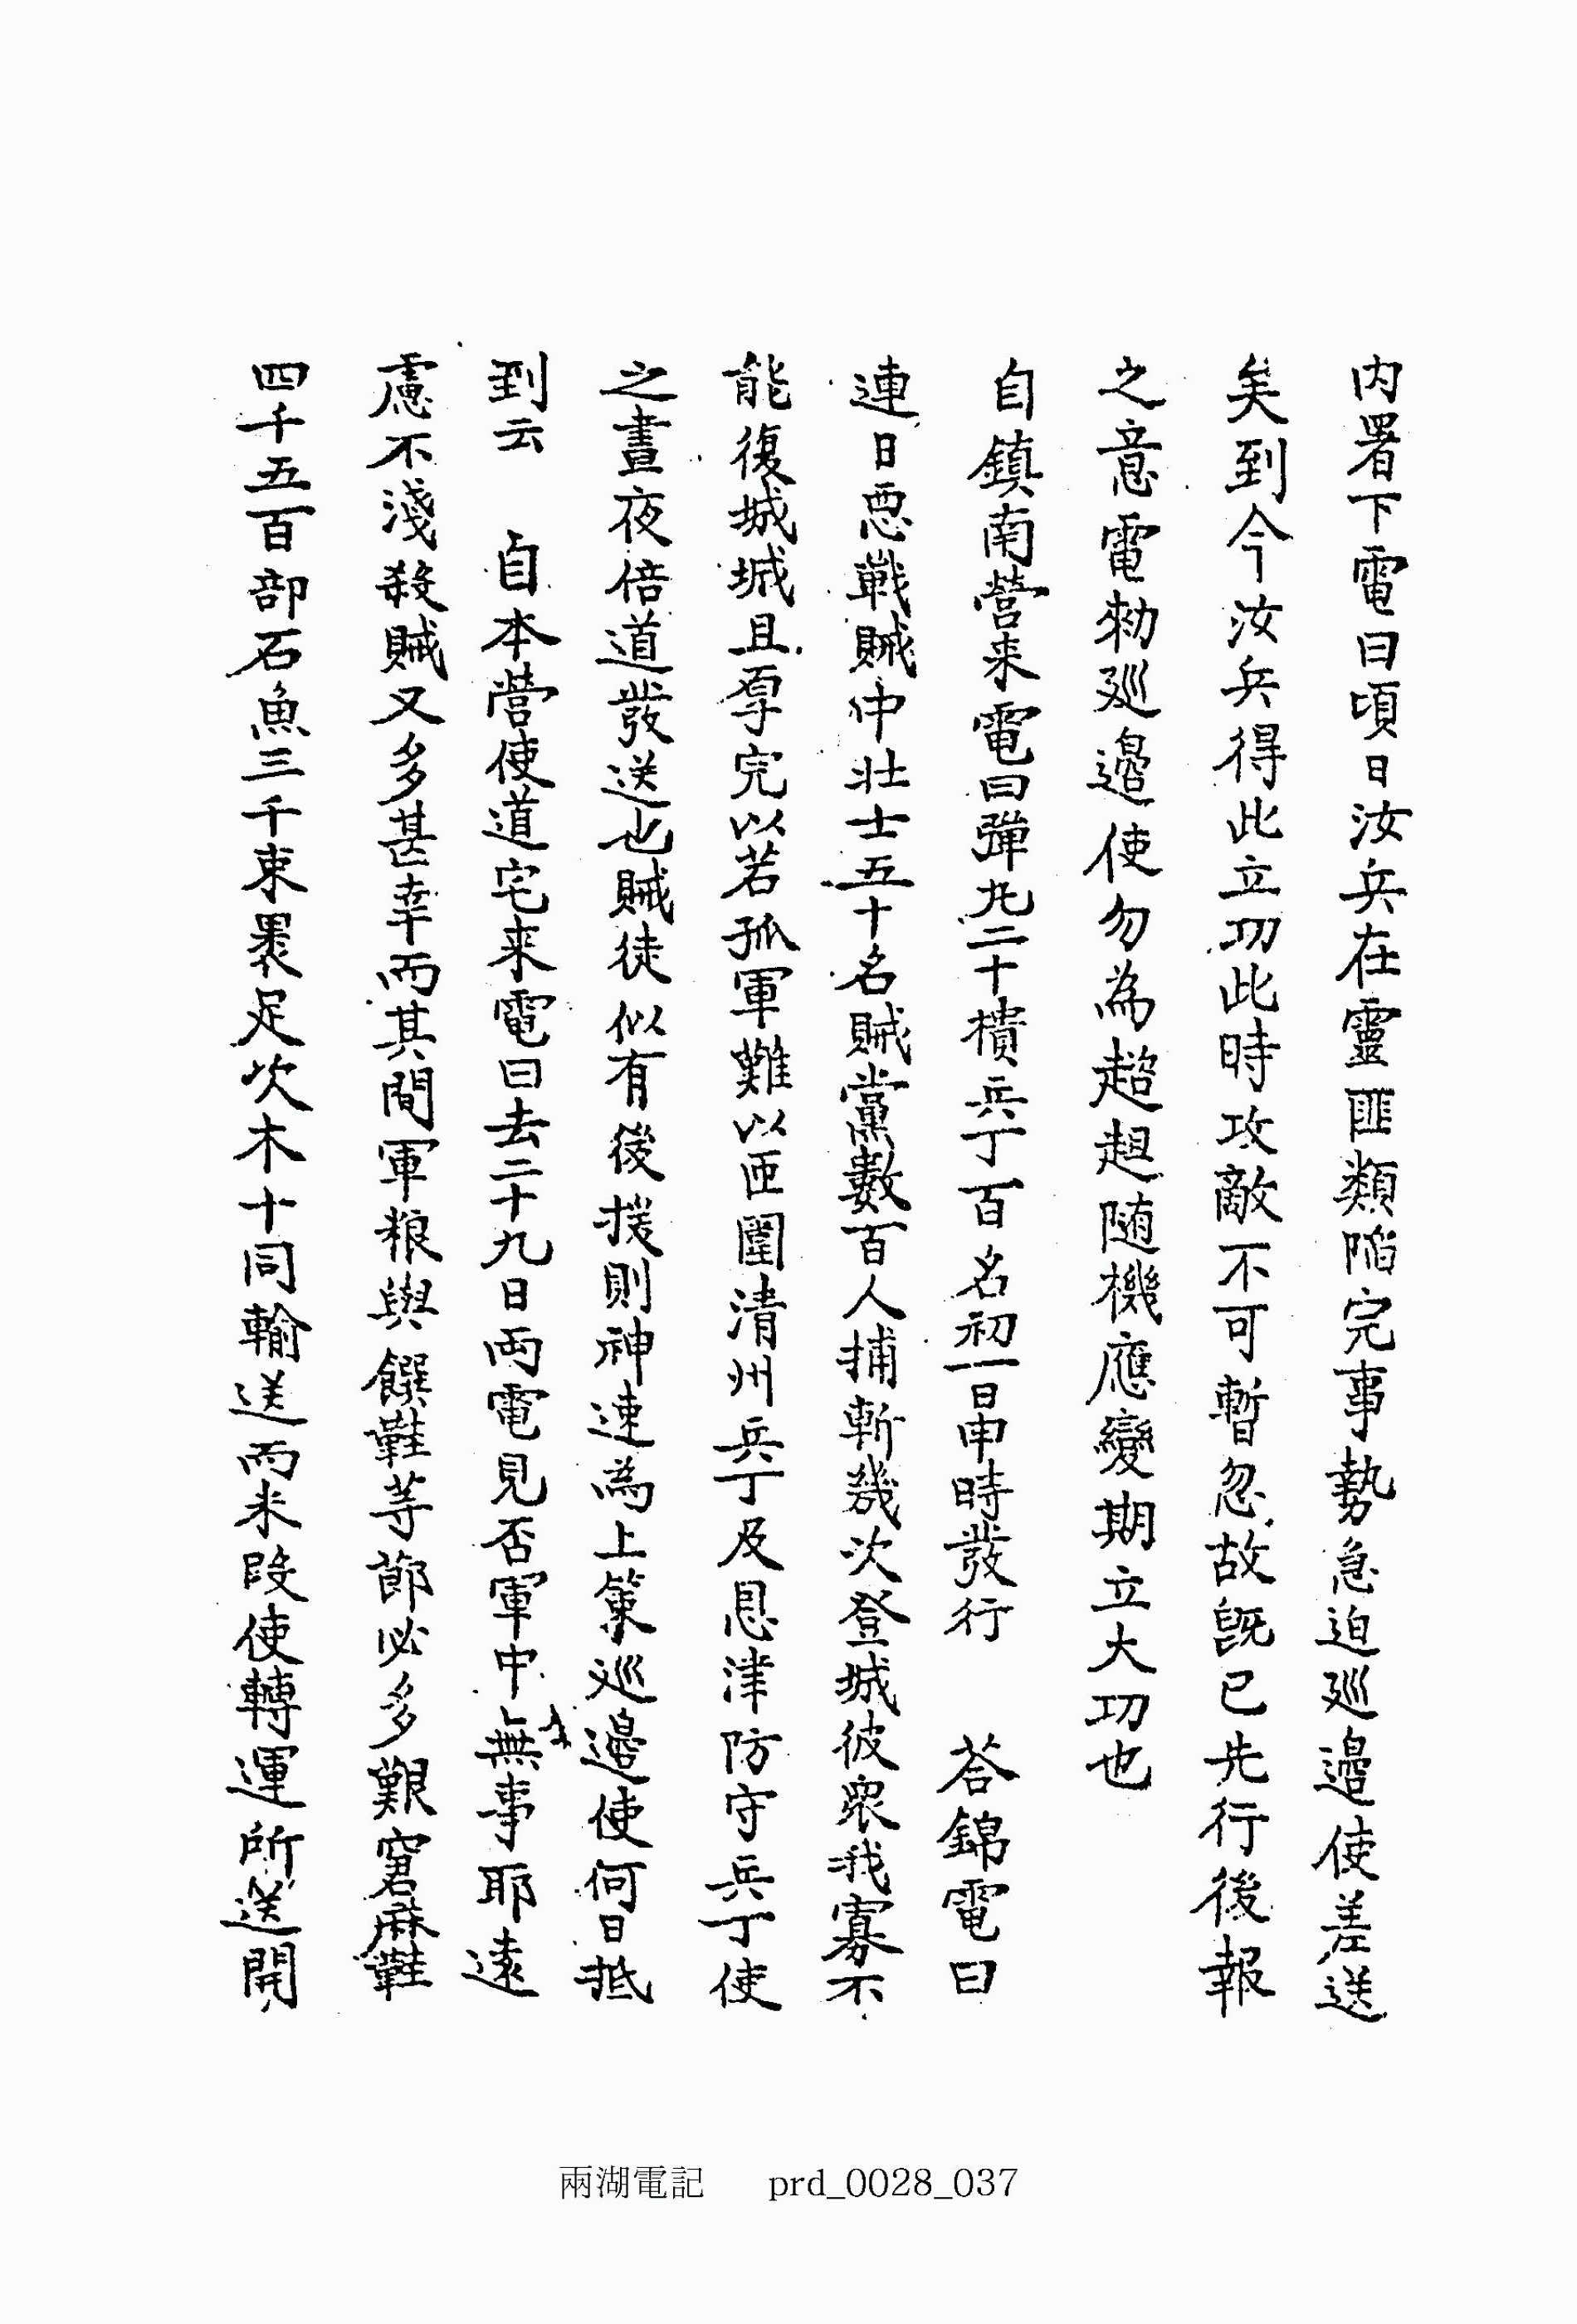 内署下電曰頃日汝兵在靈匪類陷完事勢急迫廵邉使差送
矣到今汝兵得此立功此時攻敵不可暫忽故旣已先行後報
之意電勑廵邉使勿為趑趄随機應變期立大功也
自鎮南營来電曰彈丸二十樻兵丁百名初一日申時發行　荅錦電曰
連日惡戰賊中壮士五十名賊黨數百人捕斬幾次登城彼衆我寡不
能復城城且厚完以若孤軍難以匝圍清州兵丁及恩津防守兵丁使
之晝夜倍道發送也賊徒似有後援則神速為上策巡邉使何日抵
到云　自本營使道宅来電曰去二十九日両電見否軍中無事耶遠
慮不淺殺賊又多甚幸而其間軍粮與饌鞋等節必多艱窘麻鞋
四千五百部石魚三千束裹足次木十同輸送而未段使轉運所送開
兩湖電記 prd_0028_037